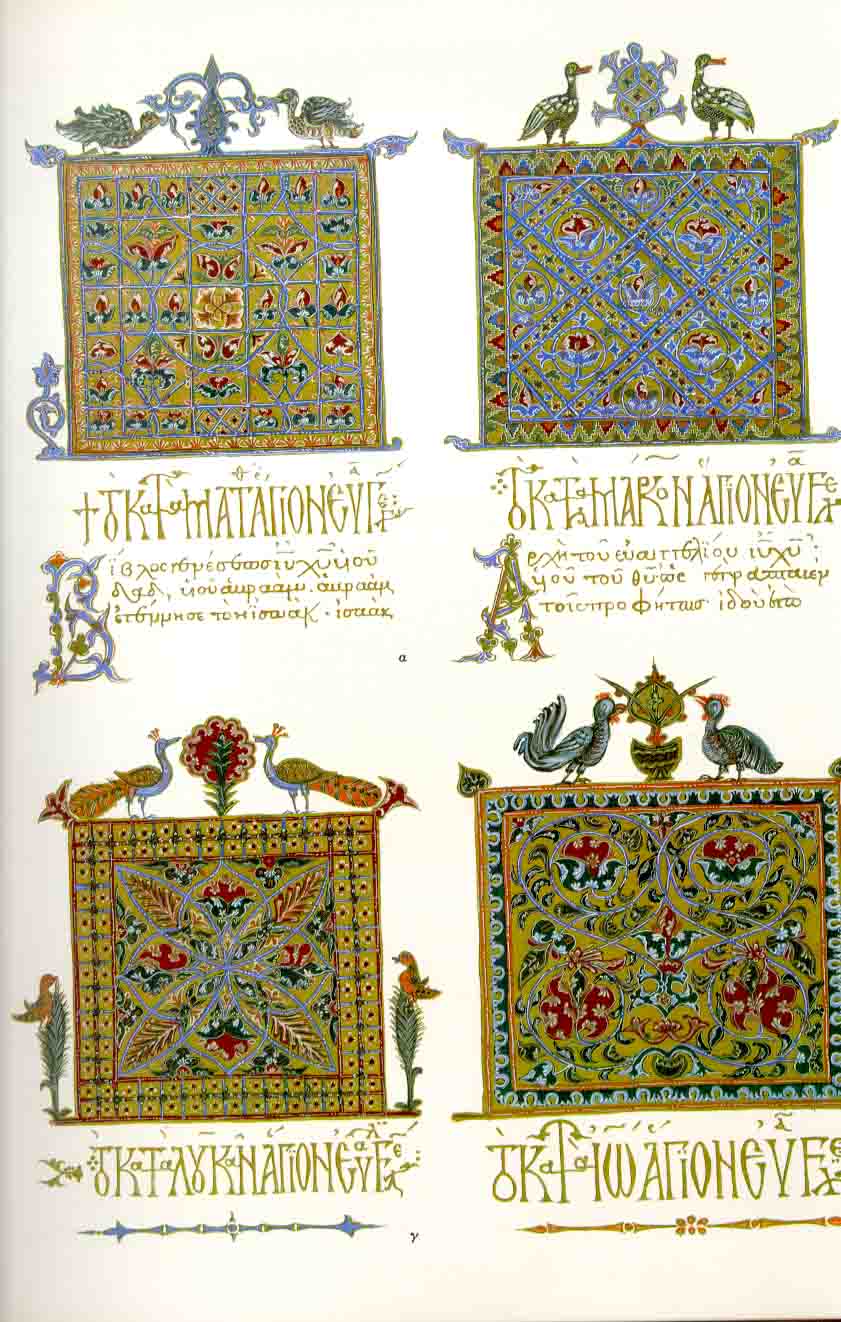 † ΤΟ ΚΑΤΑ ΜΑΤ ΑΓΙΟΝ ΕΥΓΓΕ
Βίβλος γενέσεως ἰῦ χῦ υἱοῦ
δαδ, υἱοῦ ἀβραάμ. ἀβραὰμ
ἐγέννησε τὸν ἰσαάκ. ἰσαὰκ
α
ΤΟ ΚΑΤΑ ΜΑΡΚΟΝ ΑΓΙΟΝ ΕΥΓΓΕΛ
Ἀρχὴ τοῦ εὐαγγελίου ἰῦ χῦ
υἱοῦ τοῦ θῦ ὡς γέγραπται ἐν
τοῖς προφήταις· ἰδοὺ ἐγὼ
ΤΟ ΚΑΤΑ ΛΟΥΚΑΝ ΑΓΙΟΝ ΕΥΓΓΕΛ
γ
ΤΟ ΚΑΤΑ ΙΩ ΑΓΙΟΝ ΕΥΓΓΕΛ